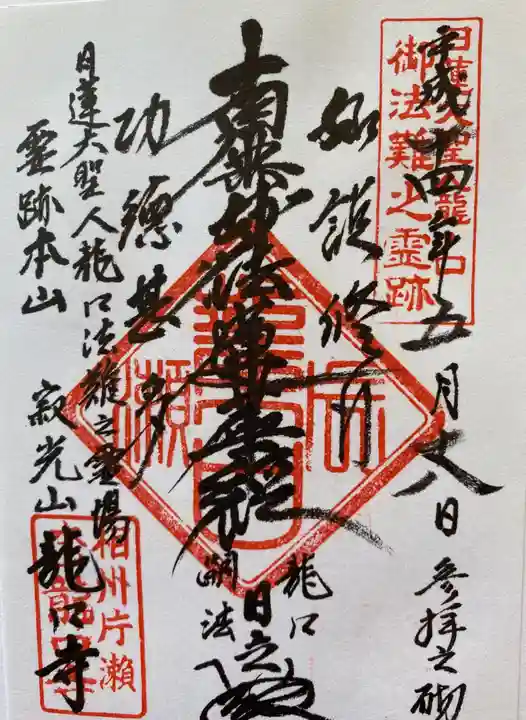 日蓮大聖人龍口
御法難之霊跡
平成十四年五月八日 参拝之砌
如説修行
南無妙法蓮華経
龍口
嗣法
日立
功徳甚多
日蓮大聖人龍口法難之霊場
霊跡本山 寂光山 龍口寺
相州片瀬